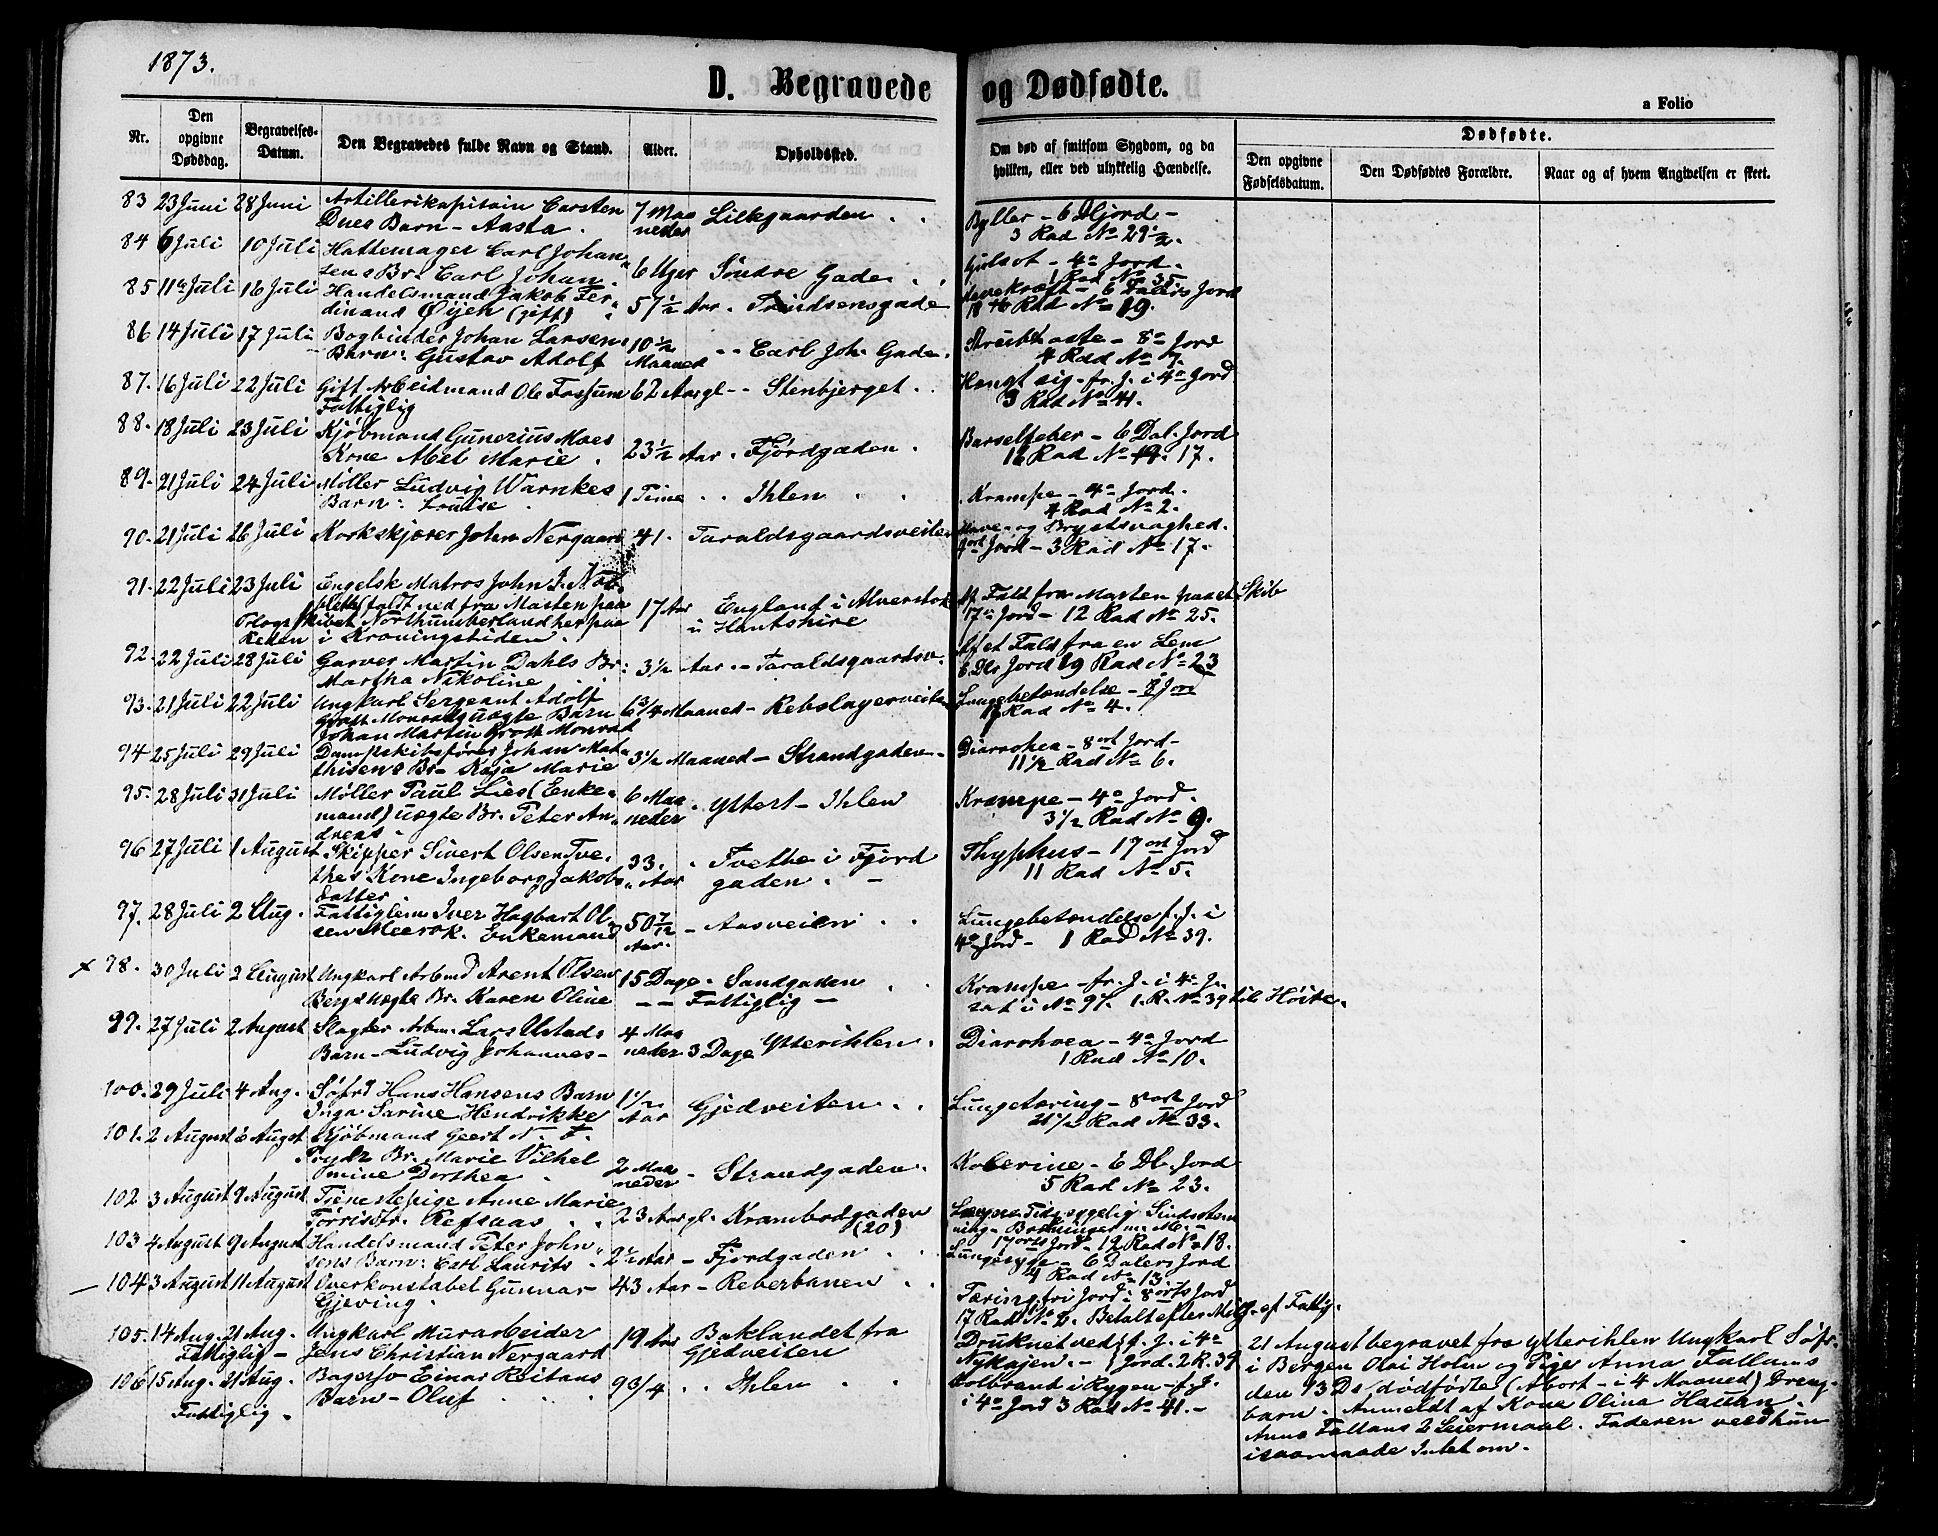 1873.
D. Begravede og Dødfødte.
a Folio
Nr.
Den opgivne Dødsdag.
Begravelses-Datum.
Den Begravedes fulde Navn og Stand.
Alder.
Opholdssted.
Om død af smitsom Sygdom, og da hvilken, eller ved ulykkelig Hændelse.
Dødfødte.
Den opgivne Fødselsdatum.
Den Dødfødtes Forældre.
Naar og af hvem Angivelsen er skeet.
83 23 Juni 28 Juni Artillerikapitain Carsten 7 Maa Lilkgaarden
Dues Barn - Aasta. neder
Byller - 6 Dljord -
3 Rad No 29½.
84 6 Juli 10 Juli Hattemager Carl Johan
sens Br. Carl Johan. 6 Uger Søndre Gade
Gulsot - 4a Jord.
1 Rad No 35
85 11 Juli 16 Juli Handelsmand Jakob Fer
dinand Øijen (gift) 57½ Aar.
6 Dalers Jord
Rad No 19.
86 14 Juli 17 Juli Bogbinder Johan Larsens 10½
Barn: Gustav Adolf Maaned Carl Joh. Gade.
Strubehoste - 8a Jord
4 Rad No 7.
87. 16 Juli 22 Juli Gift Arbeidmand Ole Fossum 62 Aar gl - Stenbjerget.
Fattiglig
Hængt sig - fr. J. i 4a Jord
3 Rad No 41.
88. 18 Juli 23 Juli Kjøbmand Gunerius Moes
Kone Abel Marie. 23½ Aar. Fjordgaden.
Barselfeber - 6 Dal. Jord
16 Rad No 19. 17.
89. 21 Juli 24 Juli Møller Ludvig Warnkes
Barn: Louise 1 Time Ihlen
Krampe - 4a Jord.
4 Rad No 2.
90. 21 Juli 26 Juli Korkskjærer John Nergaard 41. Taraldsgaardsveiten
Mave- og Brystsvaghed.
Jord - 3 Rad No 17.
91. 22 Juli 23 Juli Engelsk Matros John J. Nob
(faldt ned fra Masten paa 17 Aar England i Alverstok
skibet Northumberland her paa i Hantshire
Reden i Kroningstiden.
Af Fald fra Masten paa et Skib
17a Jord - 12 Rad No 25.
92. 22 Juli 28 Juli Garver Martin Dahls Br: 3½ Aar - Taraldsgaardsv.
Martha Nikoline
Af et Fald fra en Lem
6 Dlr Jord 19 Rad No 23
93. 21 Juli 22 Juli Ungkarl Sergeant Adolf
Grott Monrad uægte Barn 6¾ Maaned - Rebslagerveiten
Johan Martin Grott Monrad
Lungebetændelse - 8 Jord
Rad No 4.
94 25 Juli 29 Juli Dampskibsfører Johan Mat
thisens Br - Kaja Marie 3½ Maaned - Strandgaden -
Diarrohea - 8 ort Jord -
11½ Rad No 6.
95. 28 Juli 31 Juli Møller Paul Lies (Enke- 6 Maa
mand) uægte Br. Peter An- neder Ytterst - Ihlen
dreas.
Krampe - 4a Jord.
3½ Rad No 9.
96 27 Juli 1 August Skipper Sivert Olsen Tve- 33.
thes Kone Ingeborg Jakobs- Aar Tvethe i Fjord
datter gaden. -
Thyphus - 17 ort Jord
11 Rad No 5.
97. 28 Juli 2 Aug. Fattiglem Iver Hagbart Ol-
sen Meerok. Enkemand 50 7/12 Aar. - Aasveien
Lungebetændelse f. J. i
4a Jord - 1 Rad No 39.
98. 30 Juli 2 August Ungkarl Arbmd Arent Olsen 15 Dage. Sandgaden
Bergs Uægte Br. Karen Oline -- Fattiglig -
Krampe - fr. J. i 4a J.
sat i No 97. 1. R. No 39 til Høire.
99. 27 Juli 2 August Slagter Arbm. Lars Olstads 4 Maa
Barn - Ludvig Johannes - neder 3 Dage Ytterihlen.
Diarrohoea - 4a Jord
1 Rad No 10.
100. 29 Juli 4 Aug. Søfrd Hans Hansens Barn 1½
Inga Sarine Hendrikke Aar Gjedveiten
Lungetæring - 8 ort Jord
21½ Rad No 33.
101. 2 August 6 Augst Kjøbmand Geert N. T.
Prydz Br. Marie Vilhel
mine Dorthea 2 Maa neder - Strandgaden.
Kolerine - 6 Dl. Jord
5 Rad No 23.
102 3 August 9 August Tjenestepige Anne Marie
Tørrisdtr. Refsaas 23 Aar gl. Krambodgaden
(20)
17 orts Jord - 12 Rad No 18.
103 4 August 9 August Handelsmand Peter John
sens Barn: Carl Laurits 2½ Aar - Fjordgaden
Lungesyge - 6 Dalers Jord
4 Rad No 13.
104 3 August 11 August Overkonstabel Gunnar 43 Aar - Reberbanen
Gjeving.
Tæring fri Jord: 8 orts Jord
17 Rad No 2. Betalt efter Mulg. af Fattig.
105. 14 Aug. 21 Aug. Ungkarl Murarbeider 19 Aar Baklandet fra
Fattiglig - Jens Christian Nergaard Gjedveiten
Druknet ved f. J. i 4a
Nykajen. - Jord. 2 R. 39
106 15 Aug. 21 Aug. Bagersv Einar Reitans 9 3/4 Ihlen
Fattiglig. Barn - Oluf
Kolbrand i Rygen - f. J.
i 4a Jord 3 Rad No 41. -
21 August begravet fra Ytterihlen Ungkarl Søfr.
i Bergen Olai Holm og Pige Anna Fallans
den 13 Ds dødfødte (Abort - i 4 Maaned) Dreng-
barn. Anmeldt af Kone Olina Hauan.
Anna Fallans 2 Leiermaal. Faderen veed hun
isaamaade Intet om.